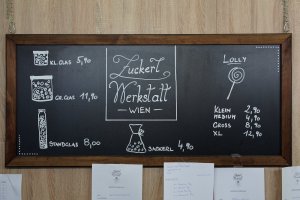 KL.GLAS 5,90
GR.GLAS 11,90
STANDGLAS 8,00
Zuckerl
Werkstatt
WIEN
SACKERL 4,90
LOLLY
KLEIN 2,90
MEDIUM 4,90
GROSS 8,90
XL 12,90